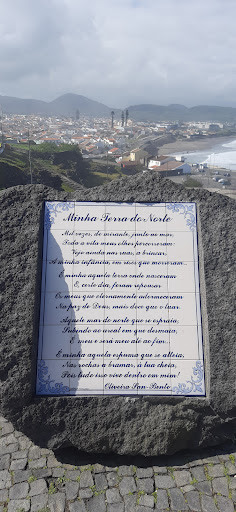 Minha Terra do Norte
Mil vezes, do mirante, junto ao mar,
Toda a vila meus olhos percorreram:
Vejo ainda nas ruas, a brincar,
A minha infância, em risos que morreram.
É minha aquela terra onde nasceram
E, certo dia, foram repousar
Os meus que eternamente adormeceram
Na paz de Deus, mais doce que o luar.
Aquele mar do norte que se espraia,
Subindo ao areal em que desmaia,
É meu e será meu até ao fim.
É minha aquela espuma que se alteia,
Nas rochas a bramar, à tua cheia,
Pois tudo isso vive dentro em mim!
Oliveira San-Bento